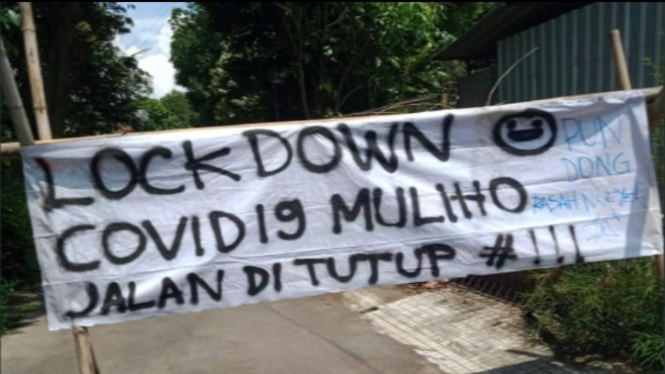 LOCKDOWN
COVID19 MULIHO
JALAN DI TUTUP #!!!
PUN
DONG